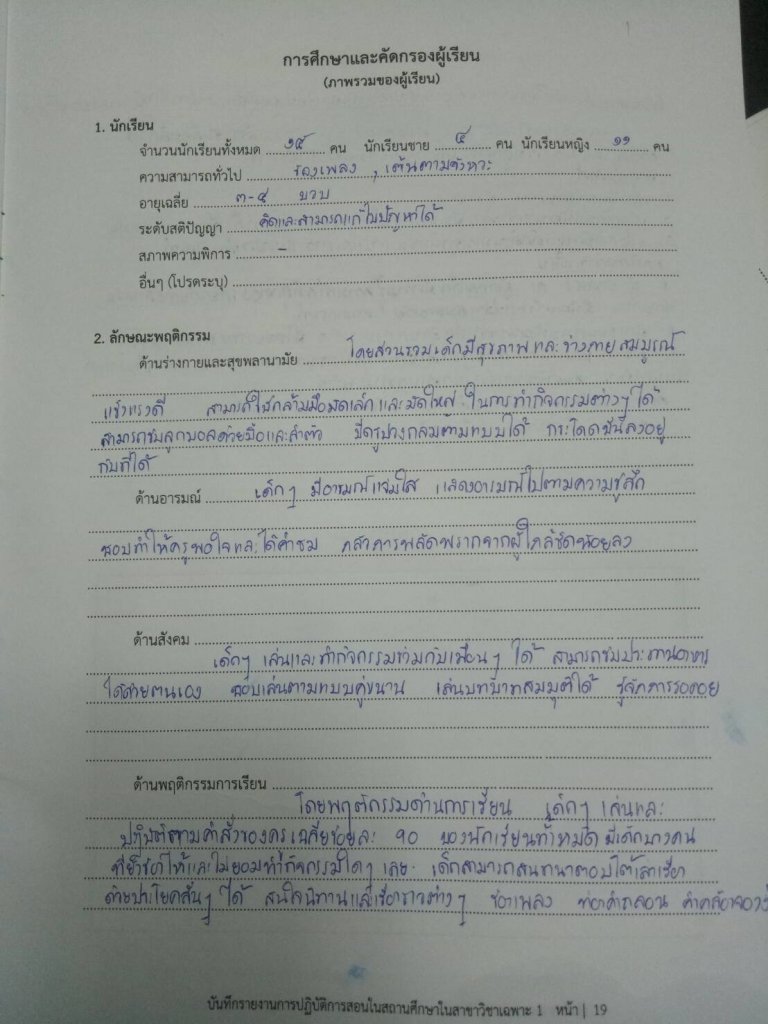 19
การศึกษาและคัดกรองผู้เรียน
(ภาพรวมของผู้เรียน)
1. นักเรียน
จำนวนนักเรียนทั้งหมด ๑๕ คน นักเรียนชาย ๔ คน นักเรียนหญิง ๑๑ คน
ความสามารถทั่วไป ร้องเพลง , เต้นตามจังหวะ
อายุเฉลี่ย ๓-๔ ขวบ
ระดับสติปัญญา คิดและสามารถแก้ไขปัญหาได้
สภาพความพิการ -
อื่นๆ (โปรดระบุ)
2. ลักษณะพฤติกรรม
ด้านร่างกายและสุขพลานามัย โดยส่วนรวมเด็กมีสุขภาพและร่างกายสมบูรณ์
แข็งแรงดี สามารถใช้กล้ามเนื้อมัดเล็กและมัดใหญ่ ในการทำกิจกรรมต่างๆ ได้
สามารถรับลูกบอลด้วยมือและลำตัว ขีดรูปวงกลมตามแบบได้ กระโดดขึ้นลงอยู่
กับที่ได้
ด้านอารมณ์ เด็กๆ มีอารมณ์แจ่มใส แสดงอารมณ์ไปตามความรู้สึก
ชอบทำให้ครูพอใจและได้คำชม กลัวการพลัดพรากจากผู้ใกล้ชิดน้อยลง
ด้านสังคม
เด็กๆ เล่นและทำกิจกรรมร่วมกับเพื่อนๆ ได้ สามารถรับประทานอาหาร
ได้ด้วยตนเอง ชอบเล่นตามแบบคู่ขนาน เล่นบทบาทสมมุติได้ รู้จักการรอคอย
ด้านพฤติกรรมการเรียน
โดยพฤติกรรมด้านการเรียน เด็กๆ เล่นและ
ปฏิบัติตามคำสั่งของครูเฉลี่ยร้อยละ ๙๐ ของนักเรียนทั้งหมด มีเด็กบางคน
ที่ยังร้องไห้และไม่ยอมทำกิจกรรมใดๆ เลย เด็กสามารถสนทนาตอบโต้เล่าเรื่อง
ด้วยประโยคสั้นๆ ได้ สนใจนิทานและเรื่องราวต่างๆ ร้องเพลง ท่องคำกลอน คำคล้องจอง
บันทึกรายงานการปฏิบัติการสอนในสถานศึกษาในสาขาวิชาเฉพาะ 1 หน้า | 19